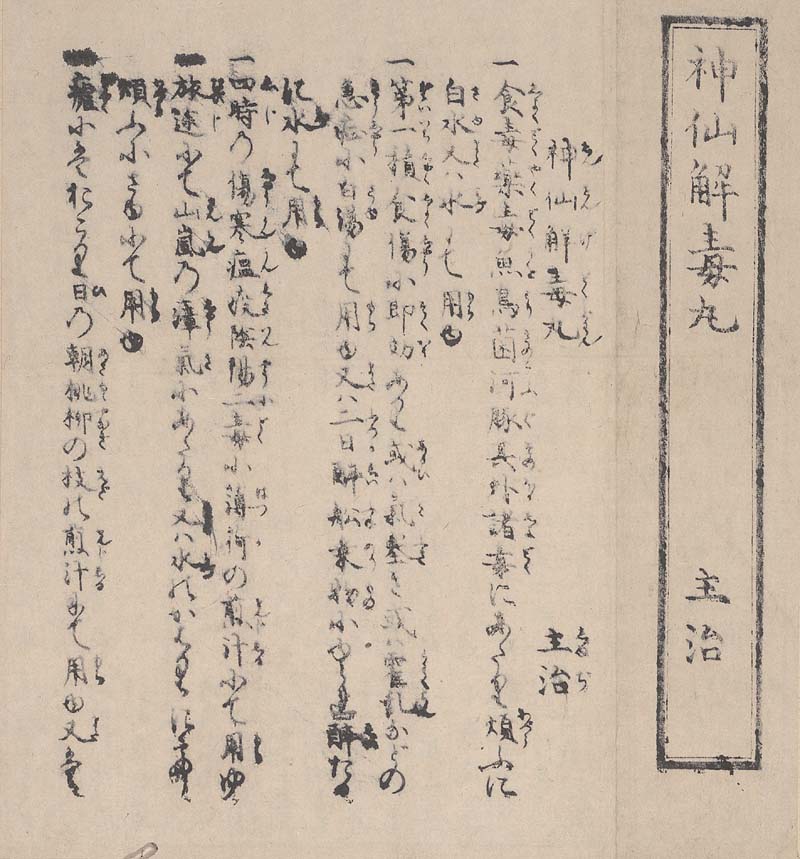 神仙解毒丸 主治
神仙解毒丸 主治
一食毒薬毒魚鳥菌河豚其外諸毒にあたり煩ふに
白水又ハ水にて用ゆ
一第一積食傷に即効あり或ハ氣塞き或ハ霍乱などの
急症に白湯にて用ゆ又ハ二日酔船乗物にゆられ酔たるに
水にて用ゆ
一四時の傷寒瘟疫陰陽二毒に薄荷の煎汁にて用ゆ
一旅途にて山嵐の瘴氣にあたり又ハ水
煩ふにさゆにて用ゆ
一瘧にはおこり日の朝桃柳の枝の煎汁にて用ゆ又は